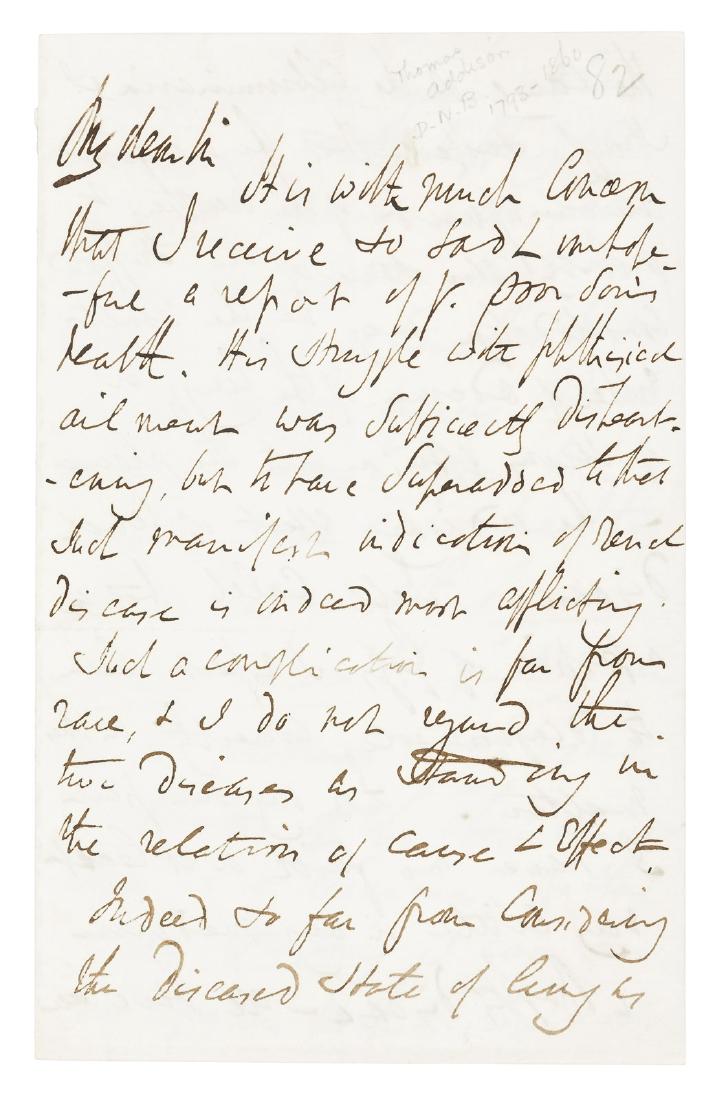 Thomas
Addison
D.N.B. 1793-1860
82
My dear Sir
It is with much Concern
that I receive so sad & unhope-
-ful a report of yr. poor Son's
health. His struggle with phthisical
ailment was sufficiently disheart-
-ening, but to have Superadded to that
such manifest indications of renal
disease is indeed most afflicting.
Such a complication is far from
rare, & I do not regard the
two diseases as standing in
the relation of cause & Effect.
Indeed so far from Considering
the diseased State of lung as